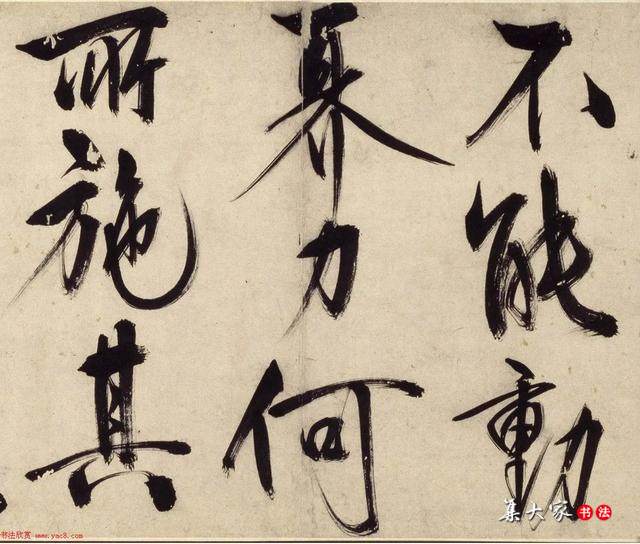 不能動
奡力何
所施其
集大家 书法
书法欣赏 www.yac8.com